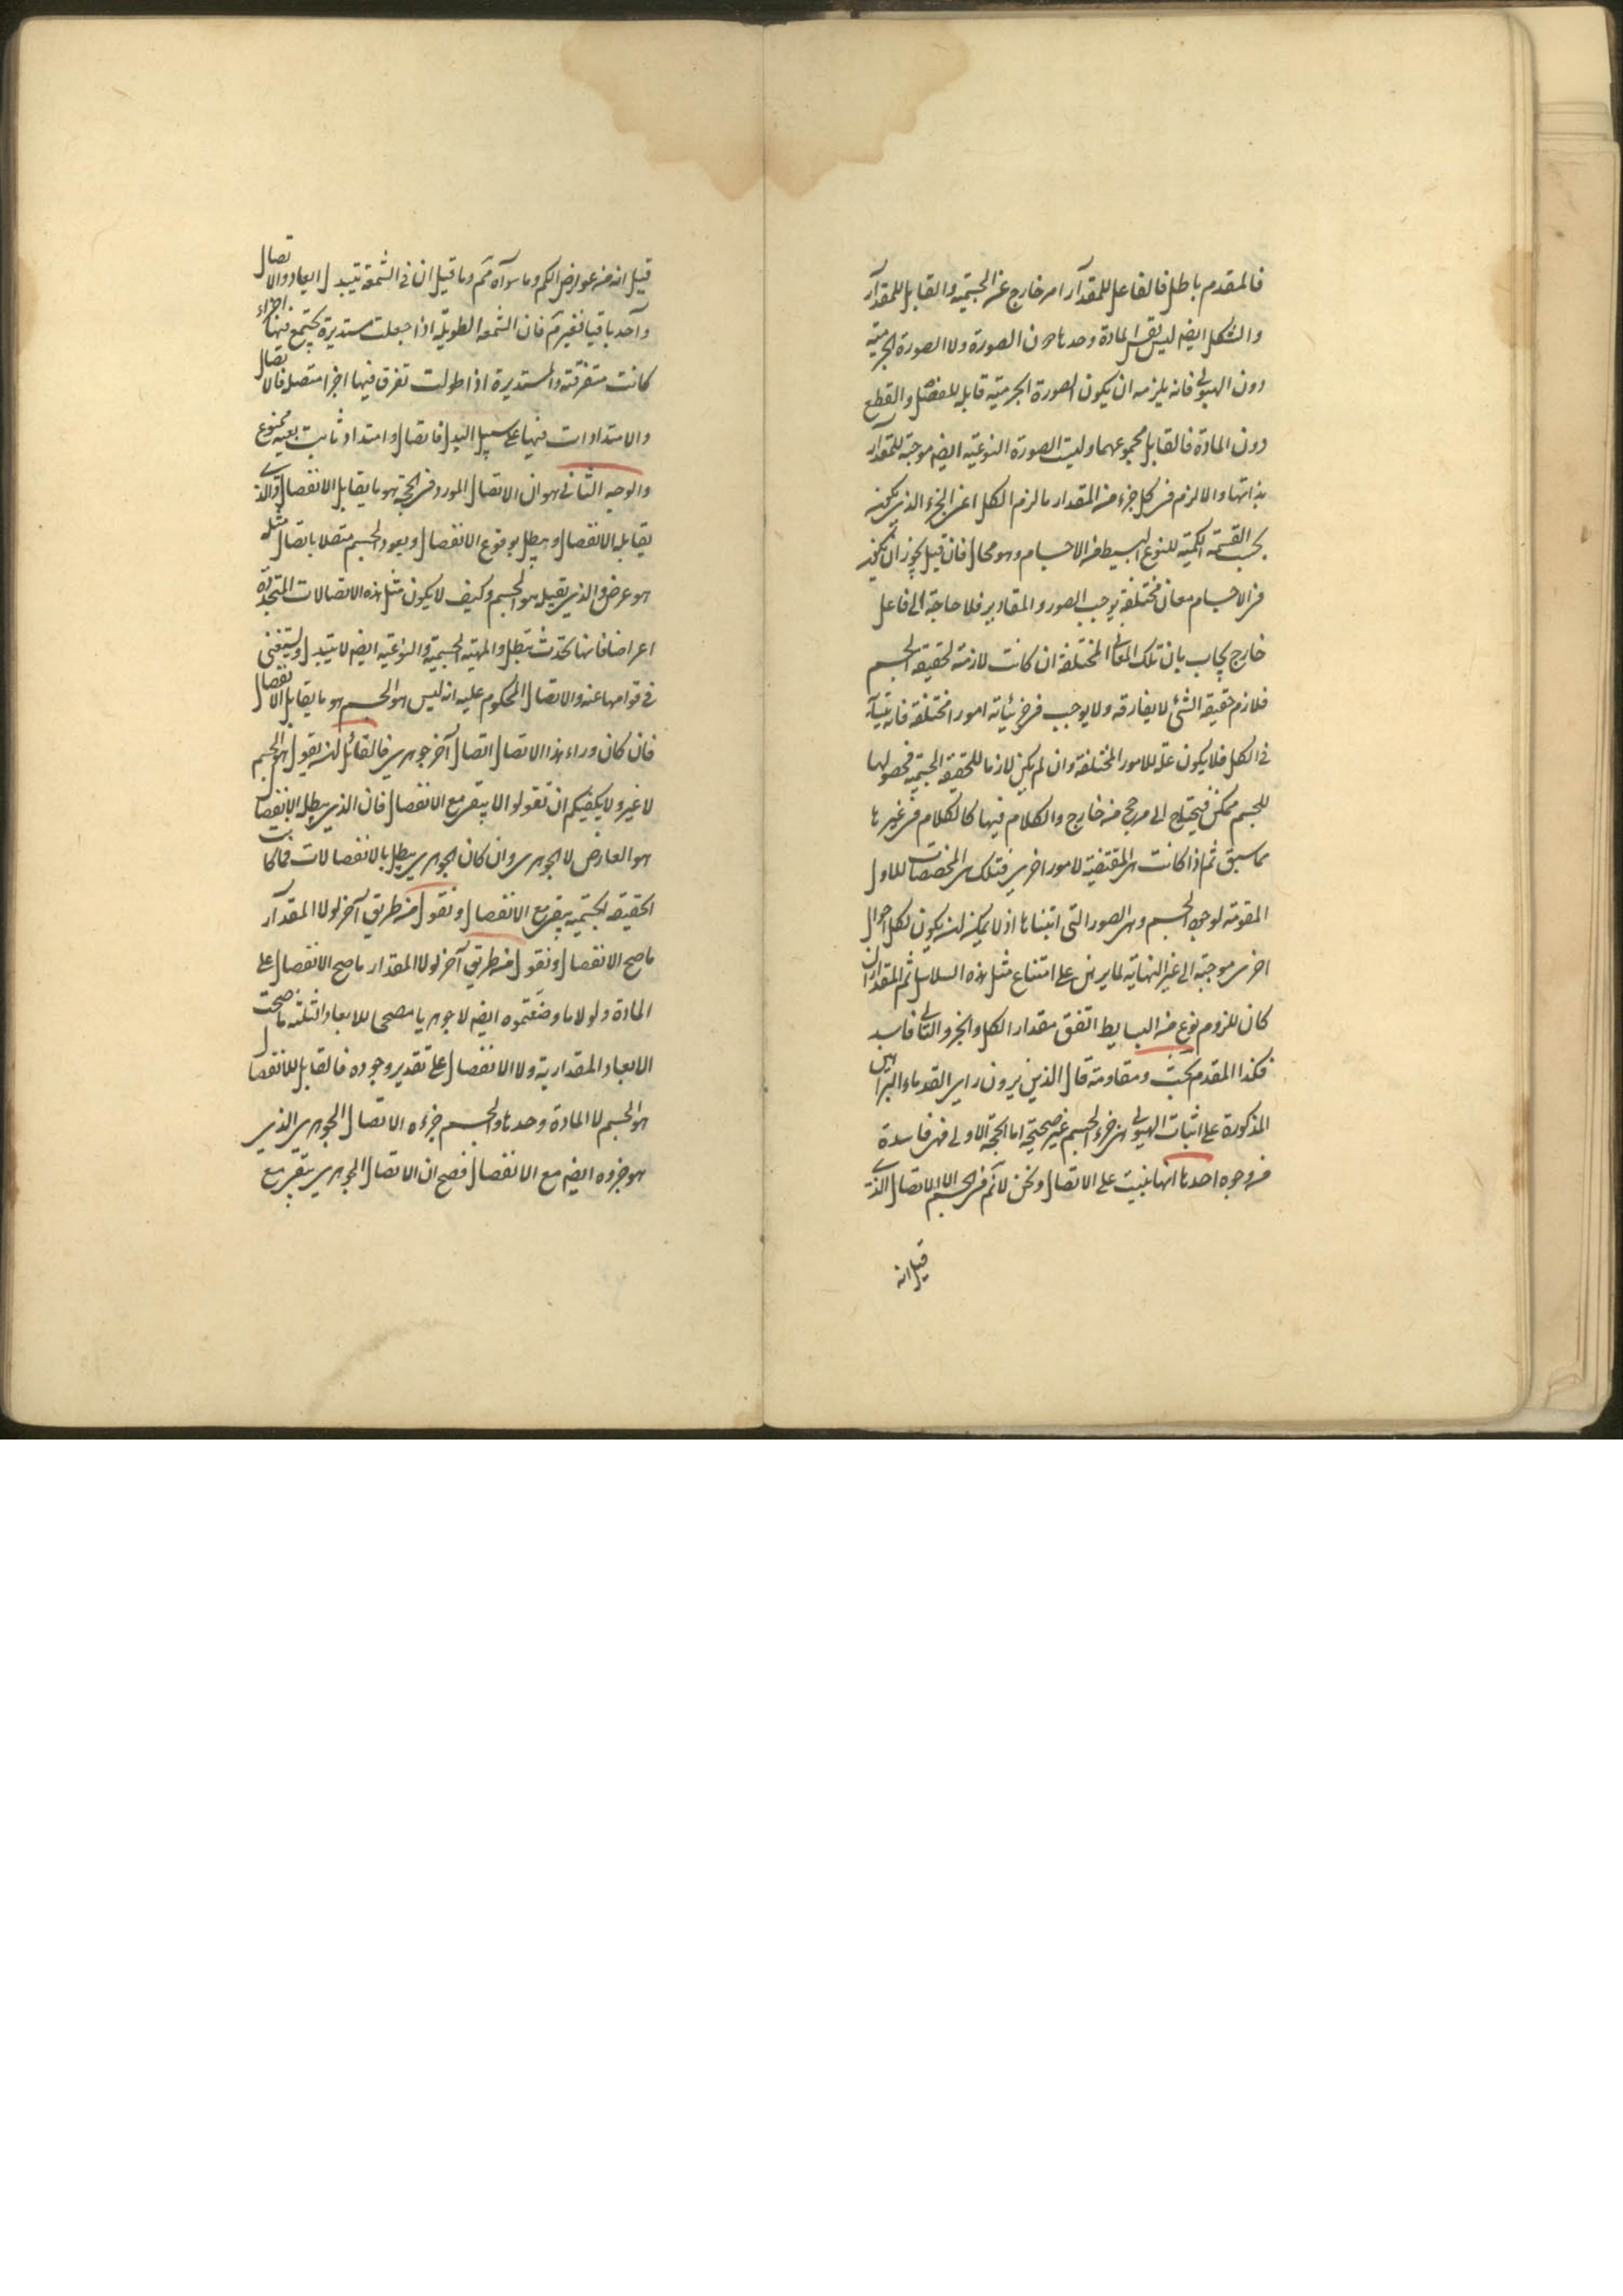 فالمقدم باطل فالفاعل للمقدار امر خارج عن الجسمية والقابل للمقدار
والشكل ايضا ليس المادة وحدها دون الصورة ولا الصورة الجرمية
دون الهيولى فانه يلزمه ان يكون الصورة الجرمية قابلة للفصل والقطع
دون المادة فالقابل مجموعهما وليست الصورة النوعية ايضا موجبة للمقدار
بذاتها والا لزم فى كل جزء من المقدار ما لزم الكل اعنى الجزء الذى يكون
بحسب القسمة الكمية للنوع البسيط من الاجسام وهو محال فان قيل يجوز ان يكون
فى الاجسام معان مختلفة يوجب الصور والمقادير فلا حاجة الى فاعل
خارج يجاب بان تلك المعانى المختلفة ان كانت لازمة لحقيقة الجسم
فلازم حقيقة الشئ لا يفارقه ولا يوجب فى جزئياته امورا مختلفة فانه
فى الكل فلا يكون علة للامور المختلفة وان لم يكن لازما للحقيقة الجسمية فحصولها
للجسم ممكن فيحتاج الى مرجح من خارج والكلام فيها كالكلام فى غيرها
مما سبق ثم اذا كانت هى المقتضية لامور اخرى فتلك هى المخصصات للاول
المقومة لوجود الجسم وهى الصور التى اثبتناها اذ لا يمكن ان يكون لكل احوال
اخرى موجبة الى غير النهاية لما برهن على امتناع مثل هذه السلاسل ثم المقدار ان
كان للزوم نوع من البسايط اتفق مقدار الكل والجزو والتالى فاسد
فكذا المقدم بحث ومقاومة قال الذين يرون راى القدماء البراهين
المذكورة على اثبات الهيولى هى جزء الجسم غير صحيحة اما الحجة الاولى فهى فاسدة
من وجوه احدها انها بنيت على الاتصال ونحن لا نم فى الجسم الا الاتصال الذى
قيل انه
قيل انه من عوارض الكم وما سواه نم وما قيل ان فى الشمعة يتبدل ابعاد والاتصال
واحد باقيا فغير نم فان الشمعة الطويلة اذا جعلت مستديرة يجتمع فيها اجزاء
كانت متفرقة والمستديرة اذا طولت تفرق فيها اجزا متصلة فالاتصال
والامتدادات فيها على سبيل البدل فاتصال وامتداد ثابت بعينه ممنوع
والوجه الثانى هو ان الاتصال المورد فى الحجة هو ما يقابل الانفصال والذى
يقابله الانفصال ويبطل بوقوع الانفصال ويعود الجسم متصلا باتصال مثله
هو عرض والذى يقبله هو الجسم وكيف لا يكون مثل هذه الاتصالات المتجددة
اعراضا فانها تحدث تبطل والمهية الجسمية والنوعية ايضا لا يتبدل ويستغنى
فى قوامها عنه والاتصال المحكوم عليه انه ليس هو الجسم هو ما يقابل الانفصال
فان كان وراء هذا الاتصال اتصال آخر جوهرى فالقائل ان يقول هو الجسم
لا غير ولا يكفيكم ان تقولوا لا يبقى مع الانفصال فان الذى يبطل الانفصال
هو العارض لا الجوهرى وان كان الجوهرى يبطل بالانفصالات فما كانت
الحقيقة الجسمية يبقى مع الانفصال ونقول من طريق آخر لولا المقدار
ما صح الانفصال ونقول من طريق آخر لولا المقدار ما صح الانفصال على
المادة ولولا ما وضعتموه ايضا لا جوهريا مصححا للابعاد الثلثة ما صحت
الابعاد المقدارية ولا الانفصال على تقدير وجوده فالقابل للانفصال
هو الجسم لا المادة وحدها والجسم جزءه الاتصال الجوهرى الذى
هو جزوه ايضا مع الانفصال فصح ان الاتصال الجوهرى يبقى مع